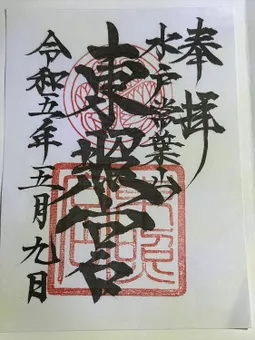 奉拝
水戸常葉山
東照宮
令和五年五月九日